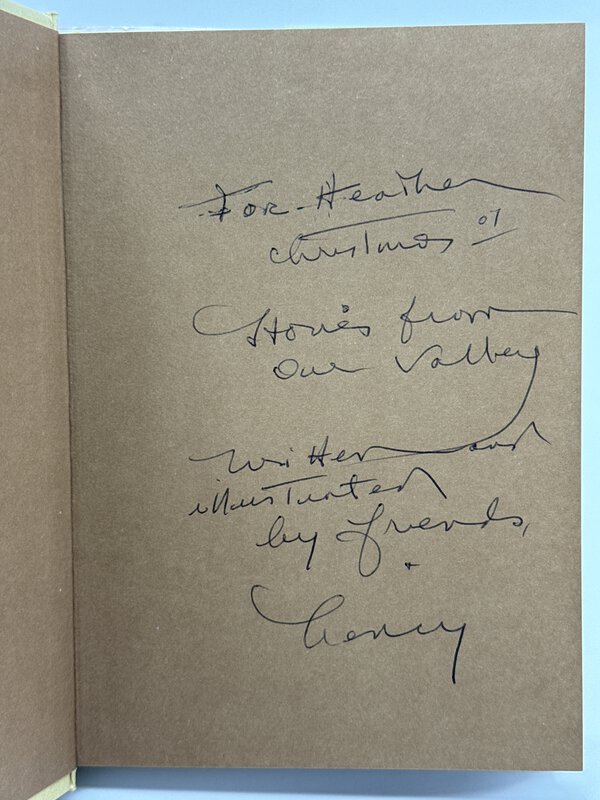 For Heather
Christmas 07
Stories from
our valley
written and
illustrated
by friends,